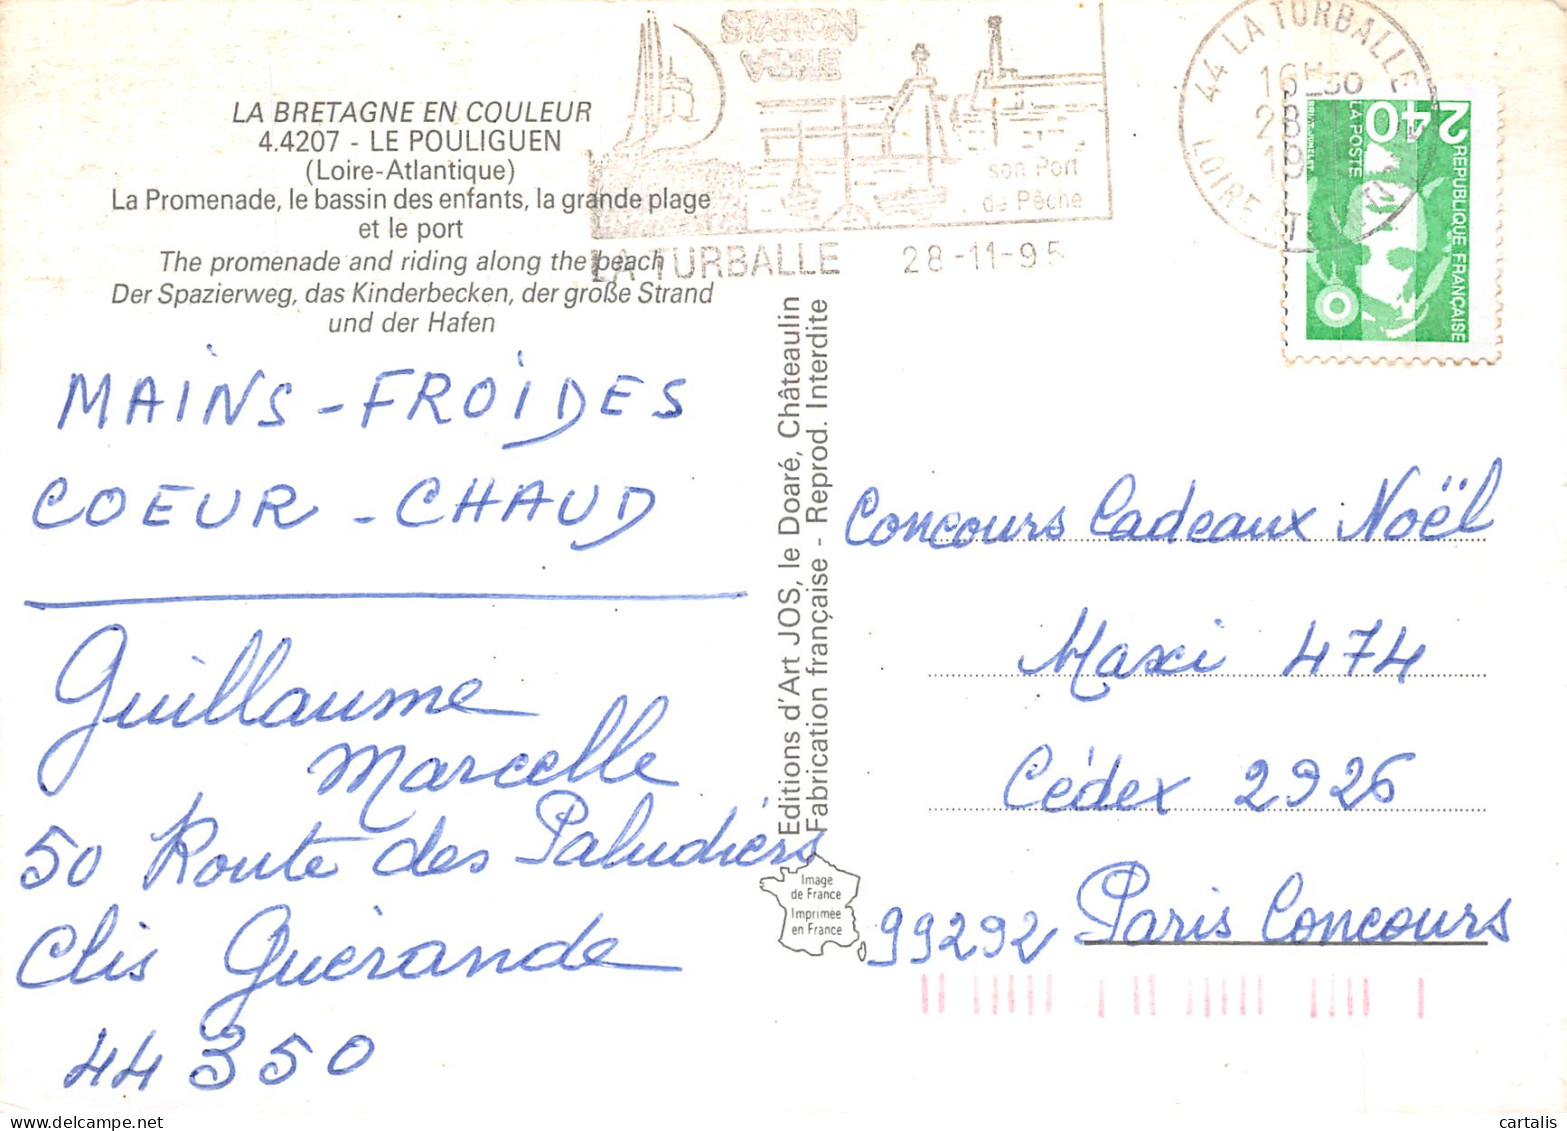 LA BRETAGNE EN COULEUR
4.4207 - LE POULIGUEN
(Loire-Atlantique)
La Promenade, le bassin des enfants, la grande plage
et le port
The promenade and riding along the beach
Der Spazierweg, das Kinderbecken, der große Strand
und der Hafen
MAINS - FROIDES
COEUR - CHAUD
Guillaume
Marcelle
50 Route des Paludiers
Clis Guérande
44350
STATION
VOILE
son Port
de Pêche
LA TURBALLE 28-11-95
44 LA TURBALLE
16H30
28
19
LOIRE
2,40
LA POSTE
REPUBLIQUE FRANÇAISE
Editions d'Art JOS, le Doaré, Châteaulin
Fabrication française - Reprod. Interdite
Image
de France
Imprimée
en France
Concours Cadeaux Noël
Maxi 474
Cédex 2926
99292 Paris Concours
cartalis